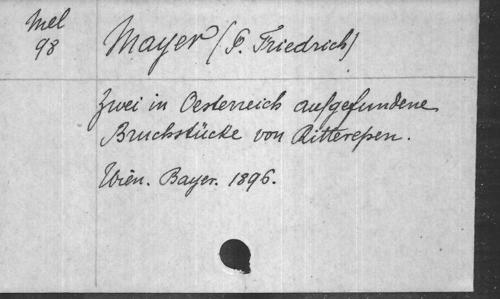 Mel
98
Mayer (P. Friedrich)
Zwei in Oesterreich aufgefundene
Bruchstücke von Ritterepen.
Wien. Bayer. 1896.